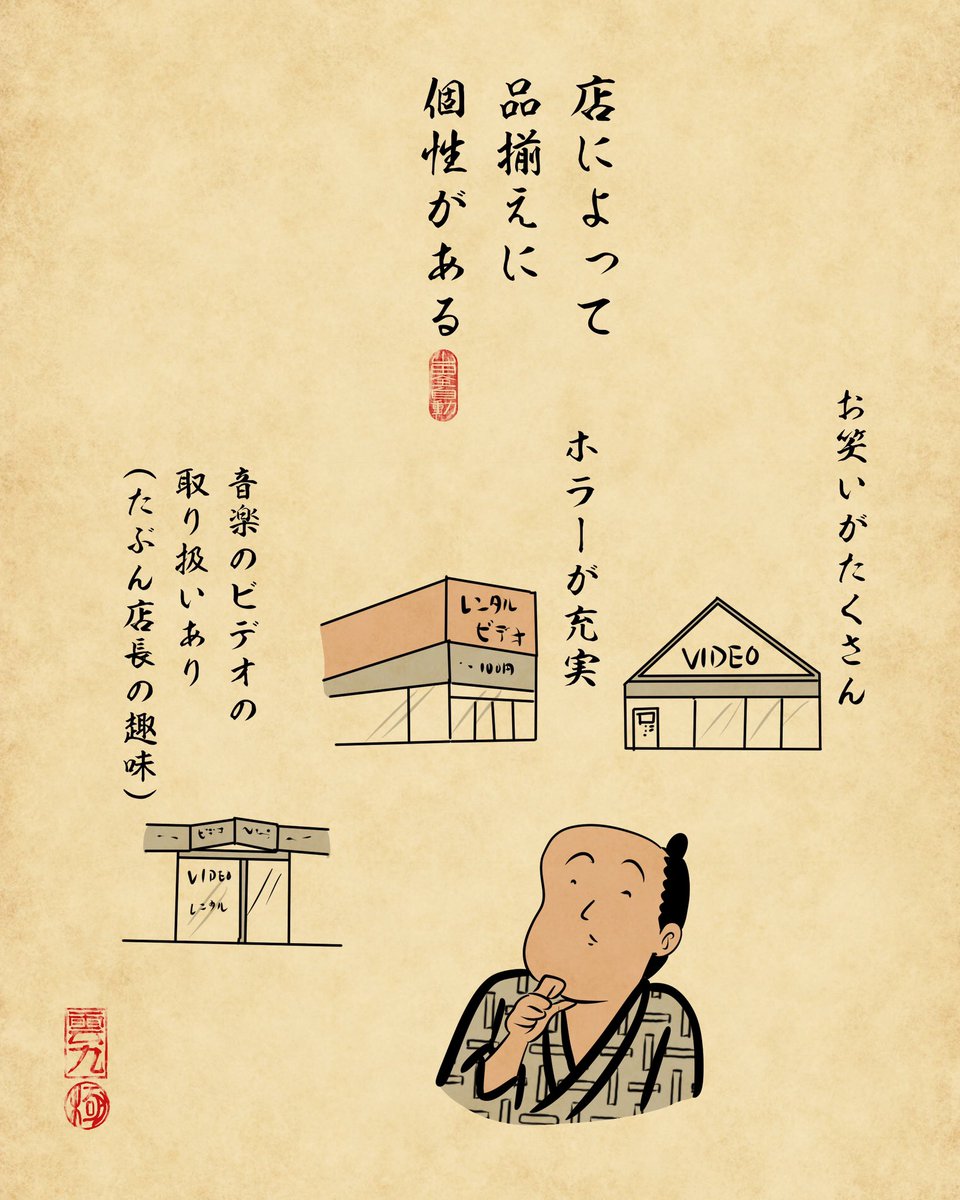 店によって
品揃えに
個性がある
お笑いがたくさん
VIDEO
ホラーが充実
レンタル
ビデオ
100円
音楽のビデオの
取り扱いあり
(たぶん店長の趣味)
ビデオ
VIDEO
レンタル